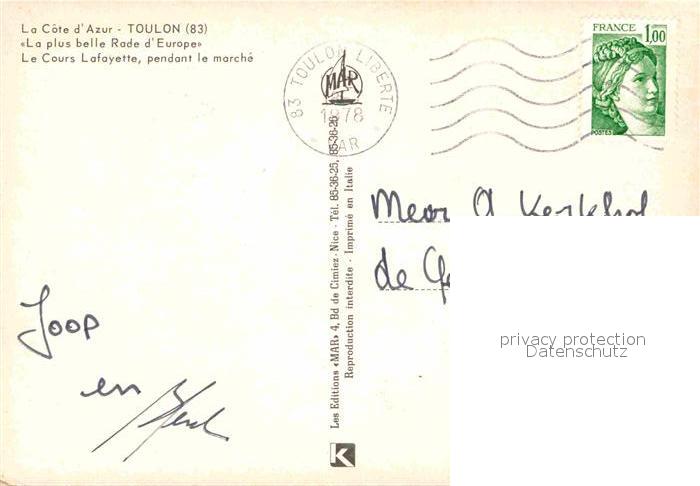 La Côte d'Azur - TOULON (83)
«La plus belle Rade d'Europe»
Le Cours Lafayette, pendant le marché
83 TOULON LIBERTE
1978
VAR
MAR
FRANCE 1,00
POSTES
Les Editions «MAR» 4, Bd de Cimiez - Nice - Tél. 85-36-25, 85-36-26
Reproduction interdite - Imprimé en Italie
K
de
Joop
en
privacy protection
Datenschutz